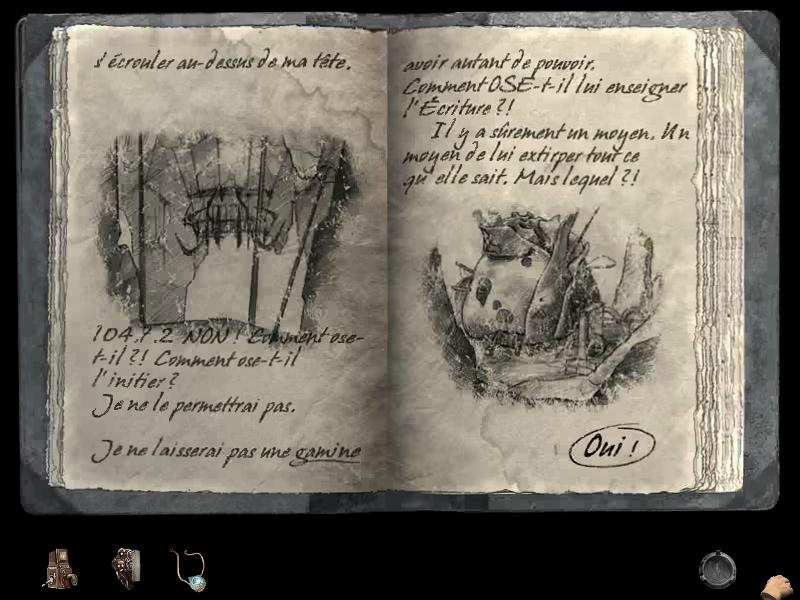 s'écrouler au-dessus de ma tête.
104.7.2 NON ! Comment ose-
t-il ?! Comment ose-t-il
l'initier ?
Je ne le permettrai pas.
Je ne laisserai pas une gamine
avoir autant de pouvoir.
Comment OSE-t-il lui enseigner
l'Écriture ?!
Il y a sûrement un moyen. Un
moyen de lui extirper tout ce
qu'elle sait. Mais lequel ?!
Oui !